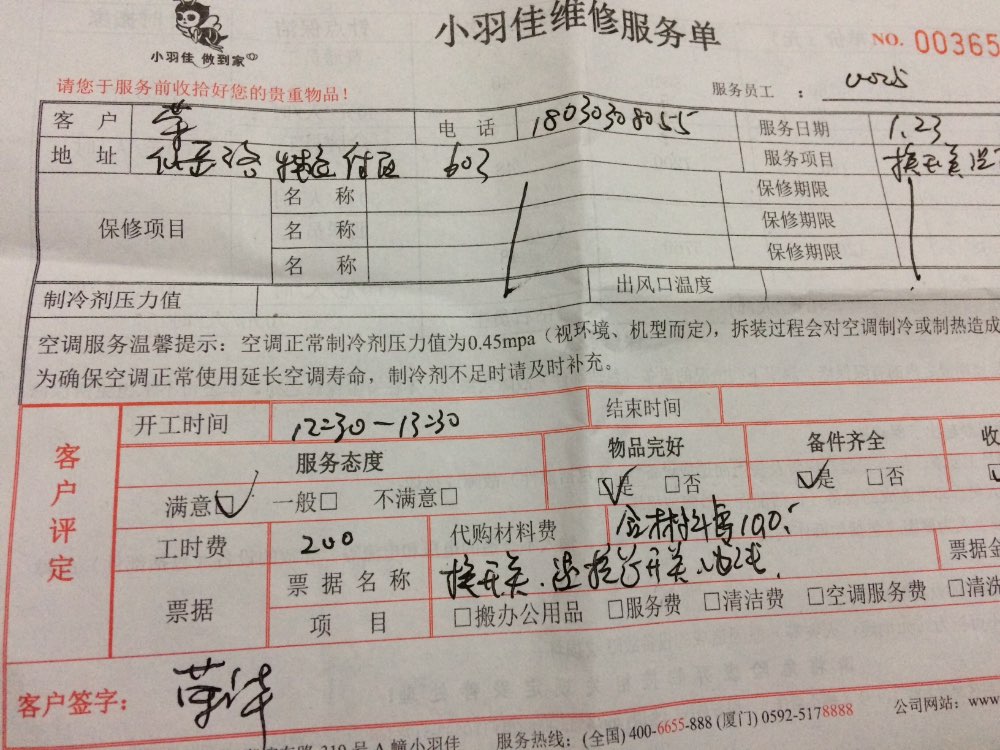 小羽佳 做到家
小羽佳维修服务单
NO. 00365
请您于服务前收拾好您的贵重物品！
服务员工 ：
客 户 电 话 18030308055 服务日期 1.23
地 址 603 服务项目 换开关
保修项目 名 称 保修期限
名 称 保修期限
名 称 保修期限
制冷剂压力值 出风口温度
空调服务温馨提示：空调正常制冷剂压力值为0.45mpa（视环境、机型而定），拆装过程会对空调制冷或制热造成
为确保空调正常使用延长空调寿命，制冷剂不足时请及时补充。
客户评定
开工时间 12:30—13:30 结束时间
服务态度 物品完好 备件齐全 收
满意☑ 一般□ 不满意□ ☑是 □否 ☑是 □否
工时费 200 代购材料费 含材料费190.
票据 票据名称 换开关. 票据金
项 目 □搬办公用品 □服务费 □清洁费 □空调服务费 □清洗
客户签字：
319号A幢小羽佳 服务热线：(全国) 400-6655-888 (厦门) 0592-5178888 公司网站：www